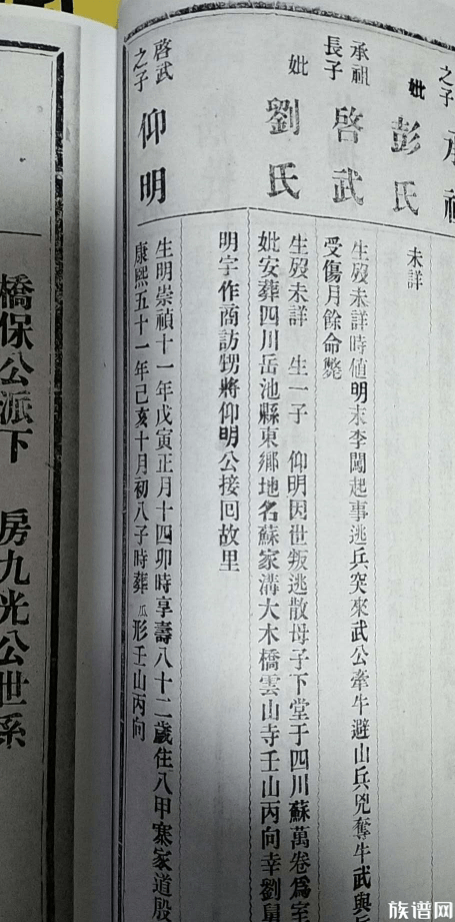 之子 承祖
妣 彭氏
未詳
承祖長子 啓武
生歿未詳時値明末李闖起事逃兵突來武公牽牛避山兵兇奪牛武與
受傷月餘命斃
妣 劉氏
生歿未詳 生一子 仰明因世叛逃散母子下堂于四川蘇萬卷爲室
妣安葬四川岳池縣東鄉地名蘇家溝大木橋雲山寺壬山丙向幸劉
明宇作商訪甥將仰明公接回故里
啓武之子 仰明
生明崇禎十一年戊寅正月十四卯時享壽八十二歲住八甲寨家道殷
康熙五十一年己亥十月初八子時葬 瓜形壬山丙向
橋保公派下 房九光公世系
族谱网